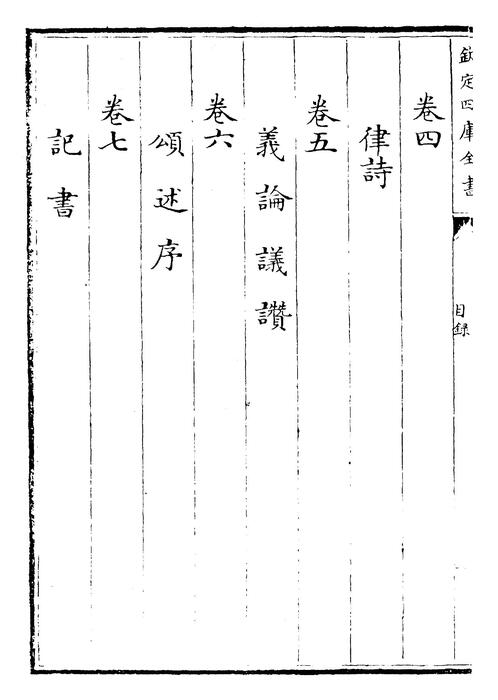 欽定四庫全書
目録
卷四
律詩
卷五
義論議讚
卷六
頌述序
卷七
記書